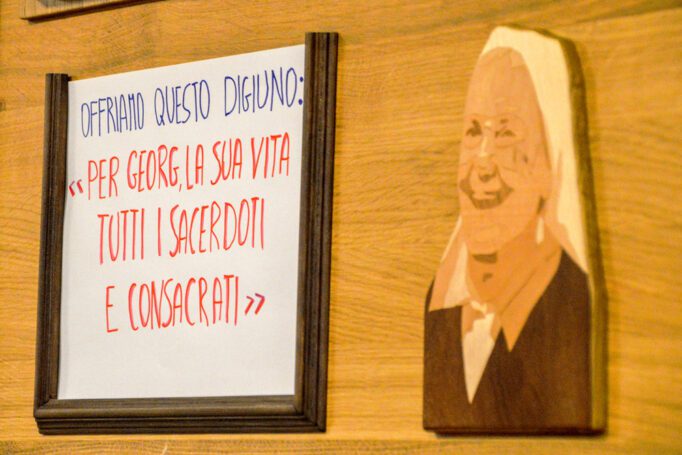 OFFRIAMO QUESTO DIGIUNO:
"PER GEORG, LA SUA VITA
TUTTI I SACERDOTI
E CONSACRATI"